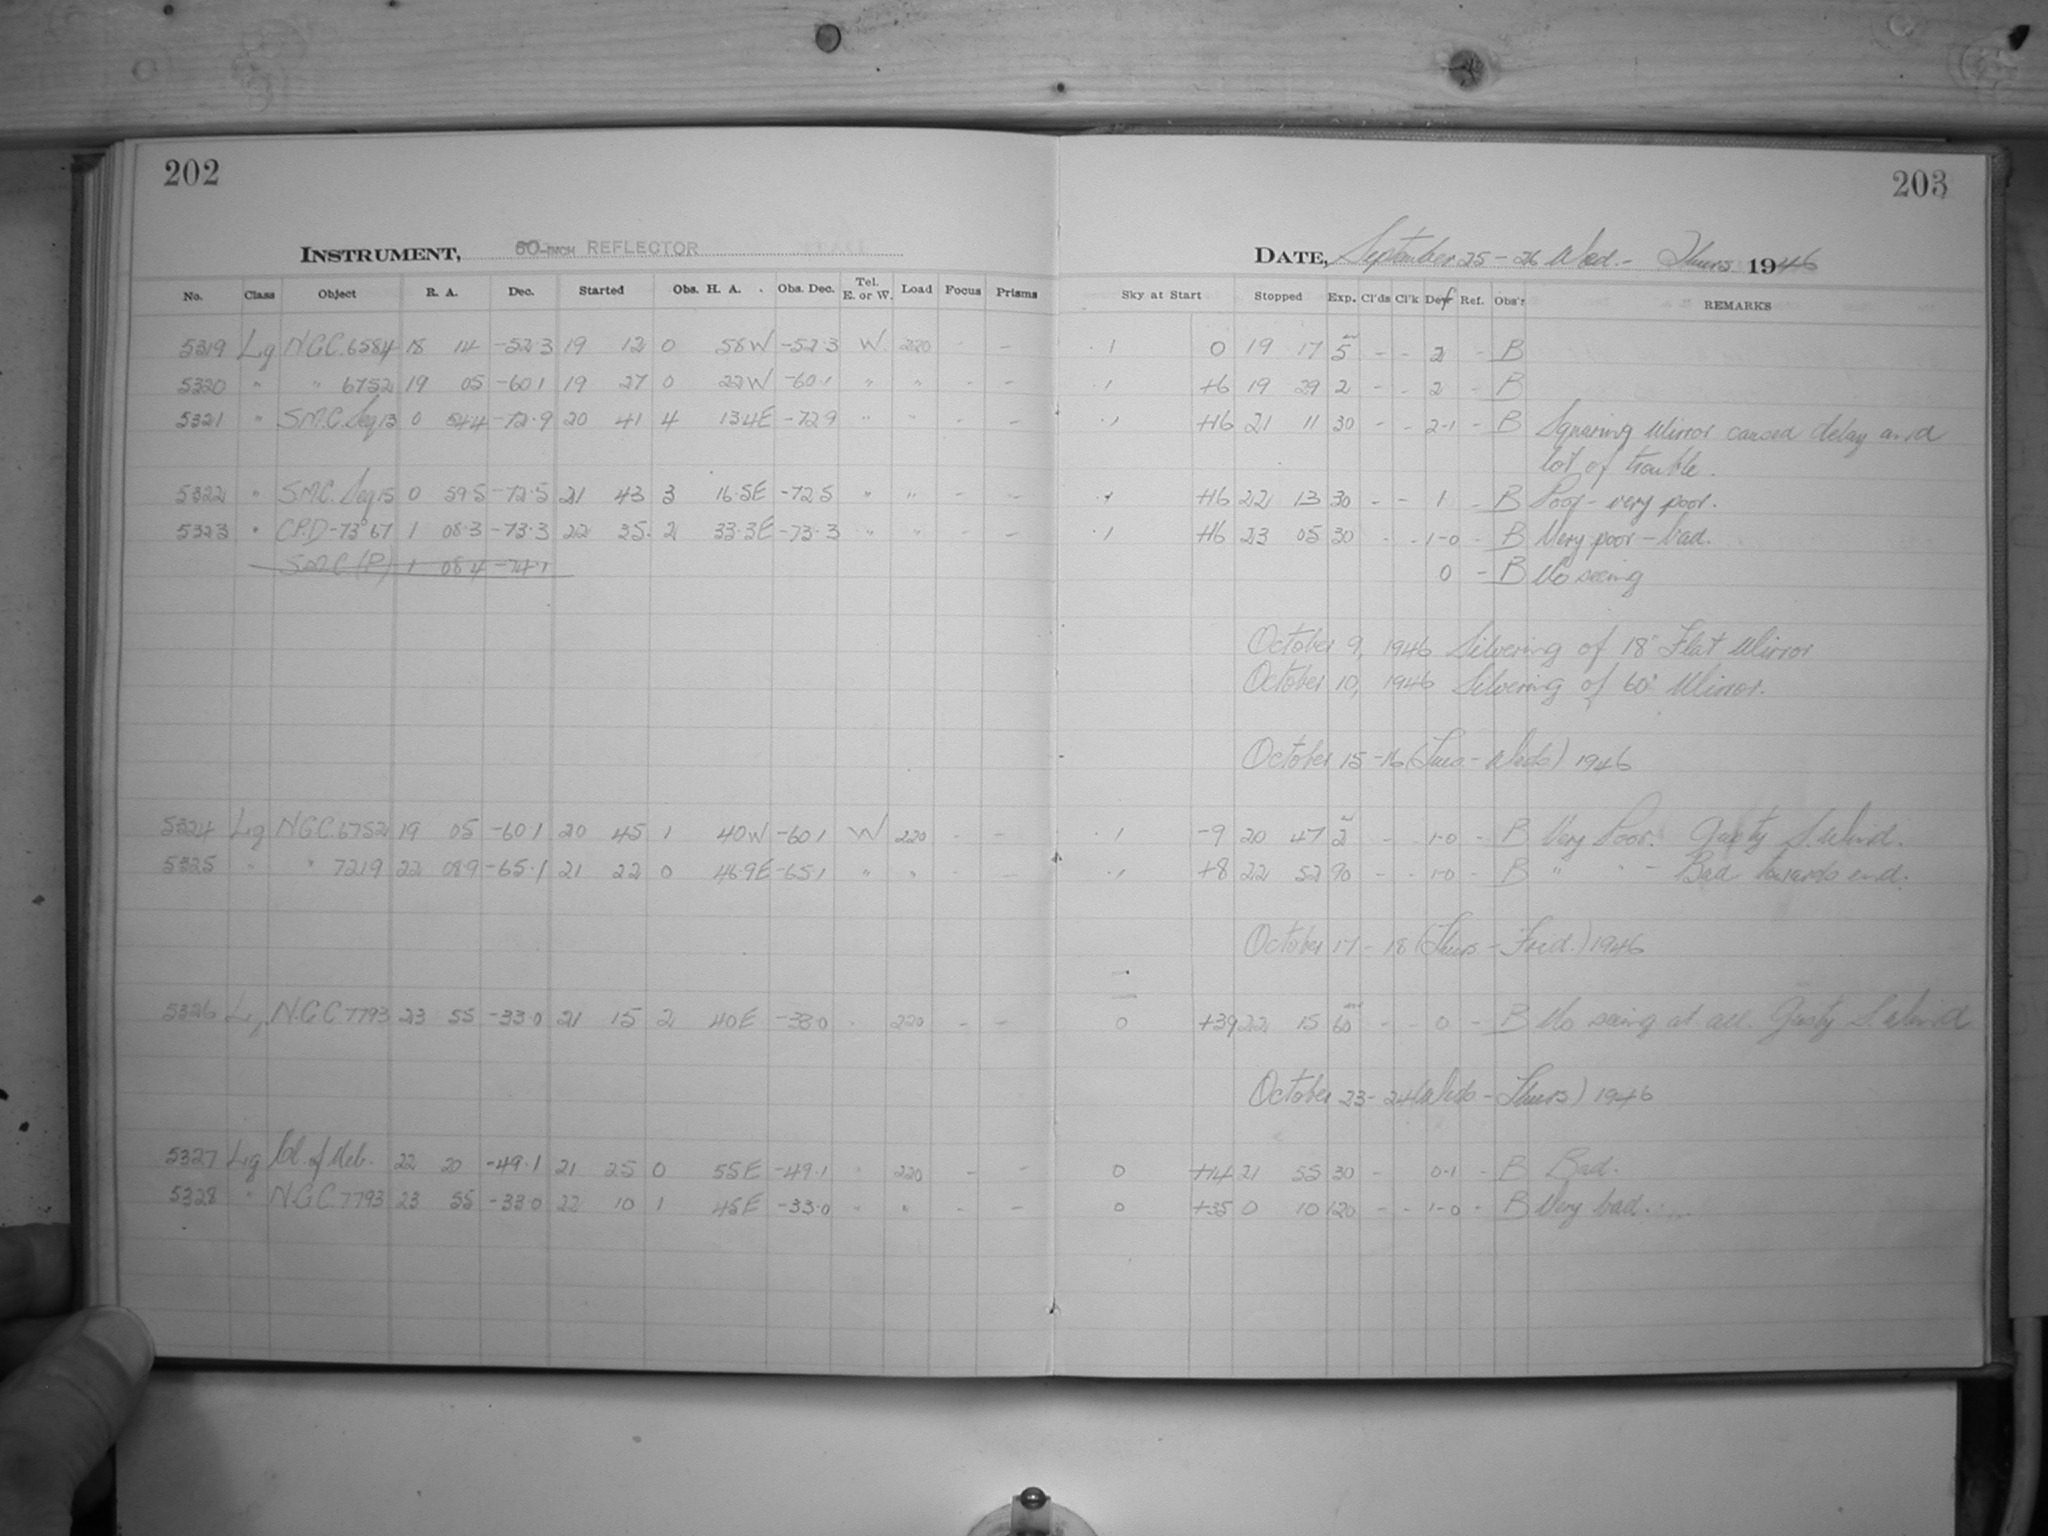 202
203
INSTRUMENT, 60-INCH REFLECTOR
DATE, September 25-26 Wed.- Thurs 1946
No. Class Object R. A. Dec. Started Obs. H. A. Obs. Dec. Tel. E. or W. Load Focus Prisms Sky at Start Stopped Exp. Cl'ds Cl'k Def Ref. Obs'r REMARKS
5319 Lg N.G.C. 6584 18 14 -52.3 19 12 0 58W -52.3 W 220 - - .1 0 19 17 5 - - 2 - B
5320 " " 6752 19 05 -60.1 19 27 0 22W -60.1 " " - - .1 +6 19 29 2 - - 2 - B
5321 " S.M.C. Seq 13 0 54.4 -72.9 20 41 4 13.4E -72.9 " " - - .1 +16 21 11 30 - - 2-1 - B Squaring Mirror caused delay and
lot of trouble.
5322 " S.M.C. Seq 15 0 59.5 -72.5 21 43 3 16.5E -72.5 " " - - .1 +16 22 13 30 - - 1 - B Poor - very poor.
5323 " C.P.D -73°67 1 08.3 -73.3 22 35 2 33.3E -73.3 " " - - .1 +16 23 05 30 - - 1-0 - B Very poor - bad.
S.M.C (P) 1 08.4 -74.1 0 - B No seeing
October 9, 1946 Silvering of 18" Flat Mirror
October 10, 1946 Silvering of 60" Mirror.
October 15-16 (Tues - Weds) 1946
5324 Lg N.G.C. 6752 19 05 -60.1 20 45 1 40W -60.1 W 220 - - .1 -9 20 47 2 - - 1-0 - B Very Poor. Gusty S. Wind.
5325 " " 7219 22 08.9 -65.1 21 22 0 46.9E -65.1 " " - - .1 +8 22 52 90 - - 1-0 - B " " - Bad towards end.
October 17 - 18 (Thurs - Frid.) 1946
5326 Lg N.G.C 7793 23 55 -33.0 21 15 2 40E -38.0 " 220 - - 0 +39 22 15 60 - - 0 - B No seeing at all. Gusty S. Wind
October 23 - 24 (Weds - Thurs) 1946
5327 Lg Cl. of Neb. 22 20 -49.1 21 25 0 55E -49.1 " 220 - - 0 +14 21 55 30 - 0-1 - B Bad.
5328 " N.G.C. 7793 23 55 -33.0 22 10 1 45E -33.0 " " - - 0 +35 0 10 120 - - 1-0 - B Very bad.